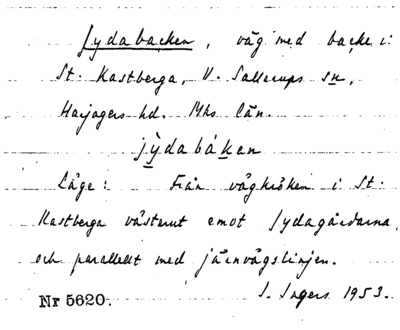 Jydabacken, väg med backe i
St. Kastberga, V. Sallerups sn,
Harjagers hd. Mhs län.
jýdabáken
Läge: Från vägkröken i St.
Kastberga västerut emot Jydagårdarna
och parallellt med järnvägslinjen.
Nr 5620. I. Ingers 1953.